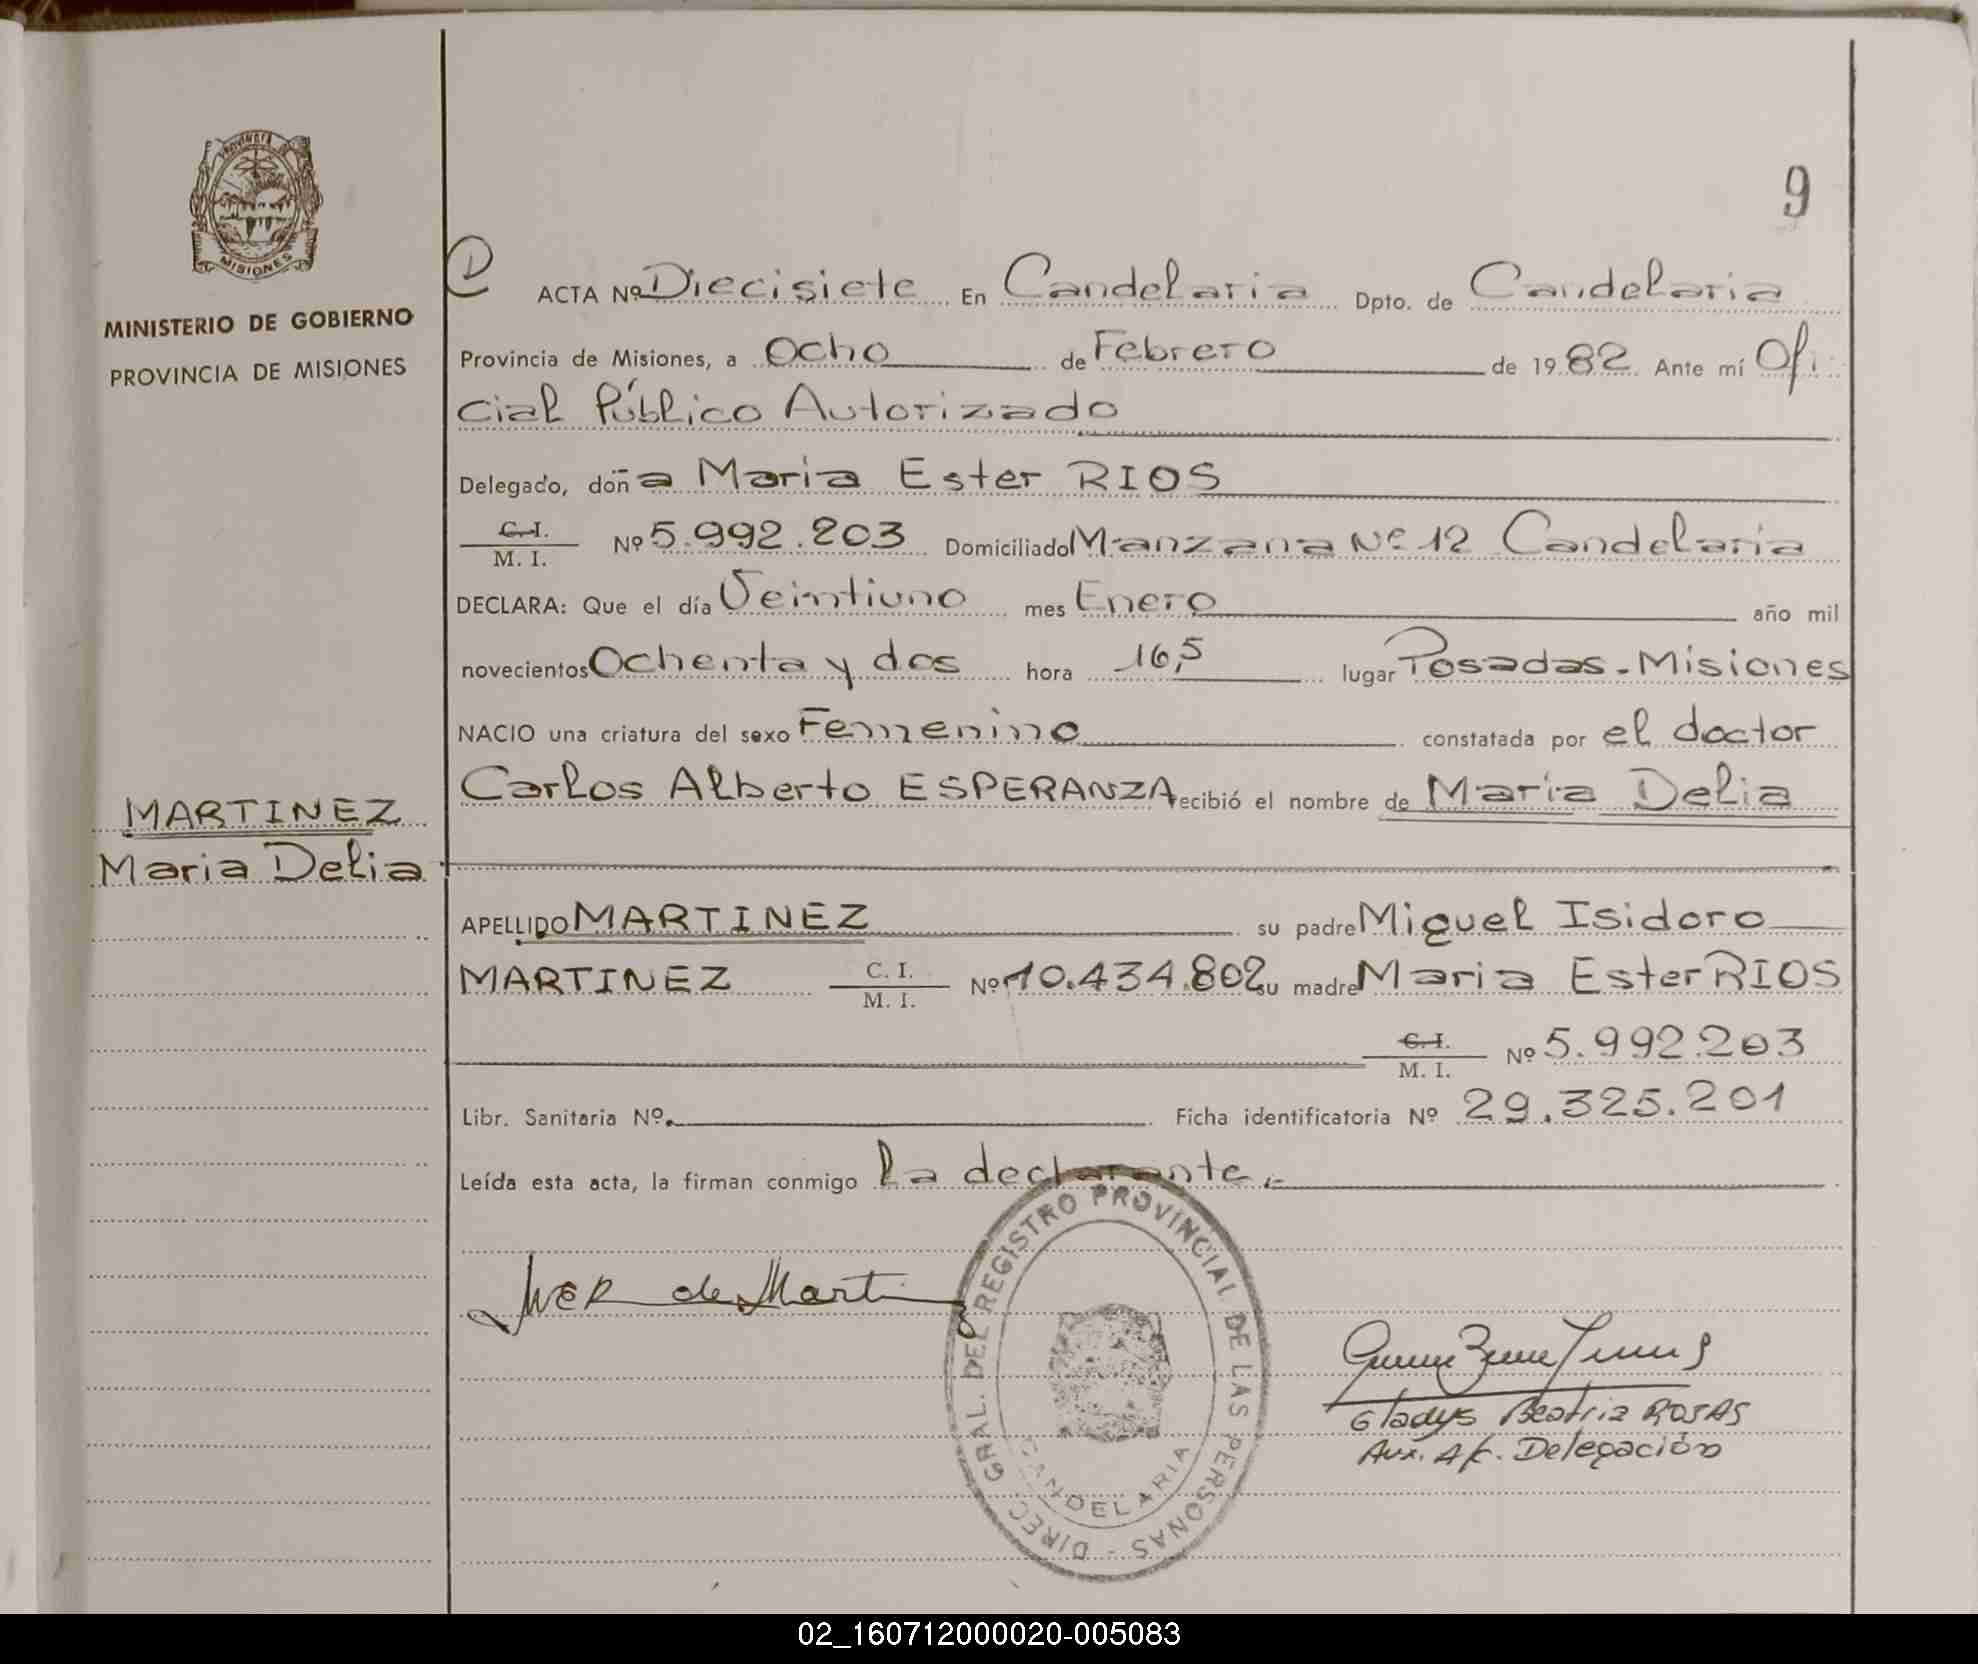 9
PROVINCIA DE
MISIONES
MINISTERIO DE GOBIERNO
PROVINCIA DE MISIONES
D ACTA Nº Diecisiete En Candelaria Dpto. de Candelaria
Provincia de Misiones, a Ocho de Febrero de 1982 Ante mí Ofi
cial Público Autorizado
Delegado, doña Maria Ester RIOS
C. I.
M. I. Nº 5.992.203 Domiciliado Manzana Nº 12 Candelaria
DECLARA: Que el día Veintiuno mes Enero año mil
novecientos Ochenta y dos hora 16,5 lugar Posadas-Misiones
NACIO una criatura del sexo Femenino constatada por el doctor
Carlos Alberto ESPERANZA recibió el nombre de Maria Delia
MARTINEZ
Maria Delia
APELLIDO MARTINEZ su padre Miguel Isidoro
MARTINEZ C. I.
M. I. Nº 10.434.802 su madre Maria Ester RIOS
C. I.
M. I. Nº 5.992.203
Libr. Sanitaria Nº. Ficha identificatoria Nº 29.325.201
Leída esta acta, la firman conmigo la declarante.-
MER de Martinez
DIREC. GRAL. DEL REGISTRO PROVINCIAL DE LAS PERSONAS -
CANDELARIA
Gladys Beatriz ROSAS
Aux. Af. Delegación
02_160712000020-005083